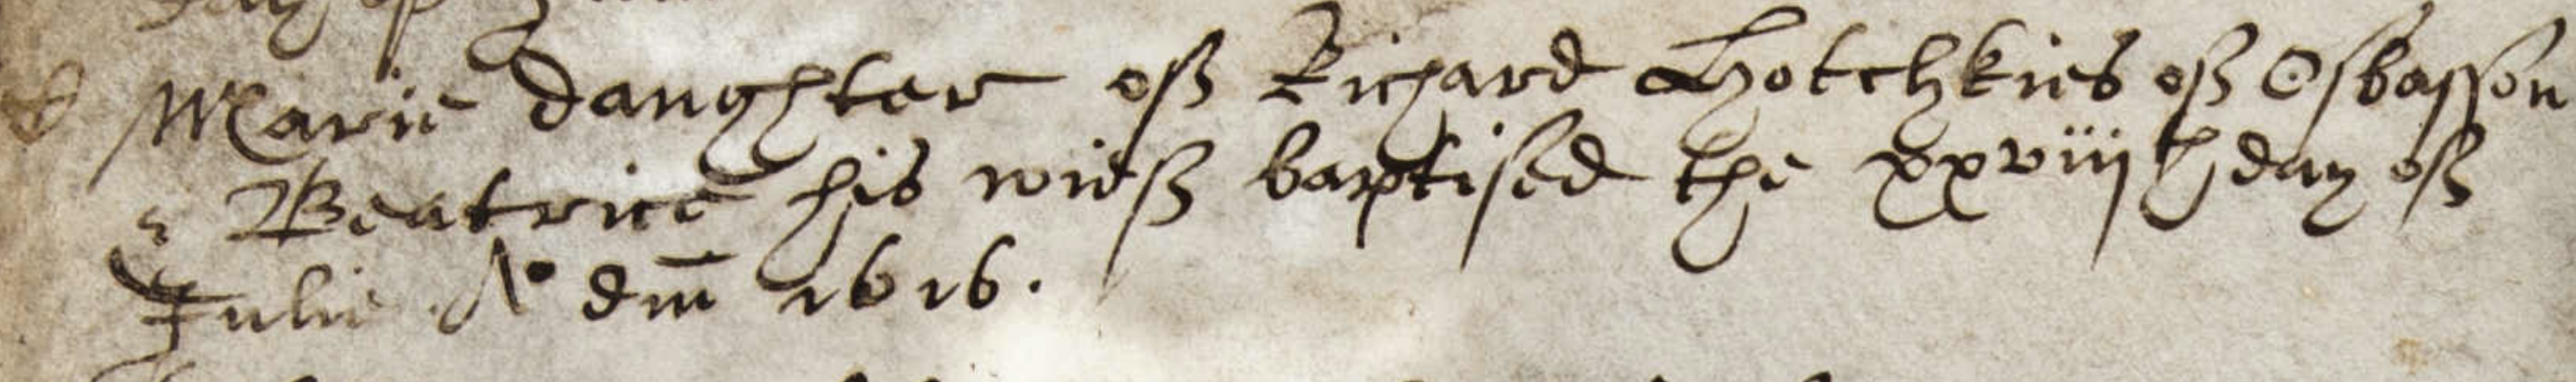 Marie daughter off Richard Hotchkies off Osbasson
& Beatrice his wieff baptised the xxviijth day off
Julie Ao dm 1616.